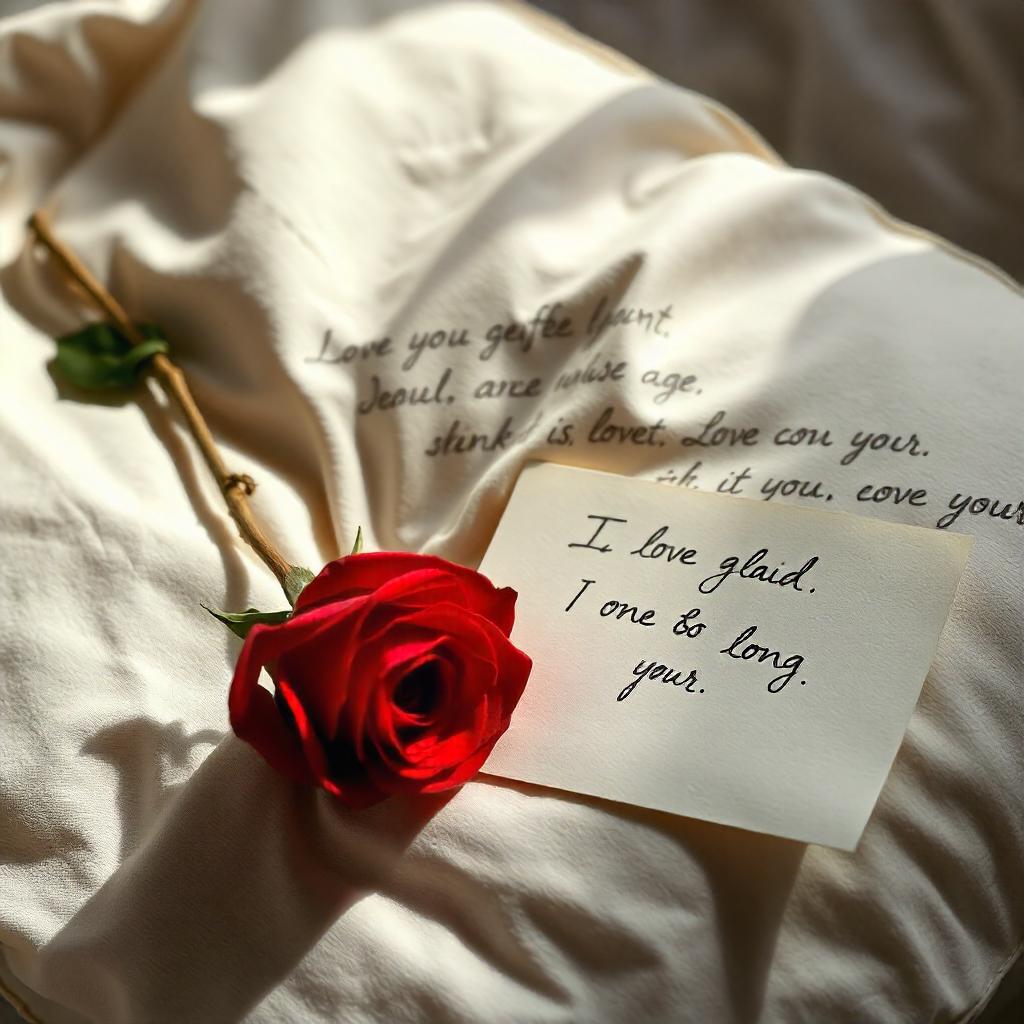 Love you geffee
Jeoul. arce age.
stink is. lovet. Love cou your.
it you. cove your
I. love glaid.
I one bo long.
your.